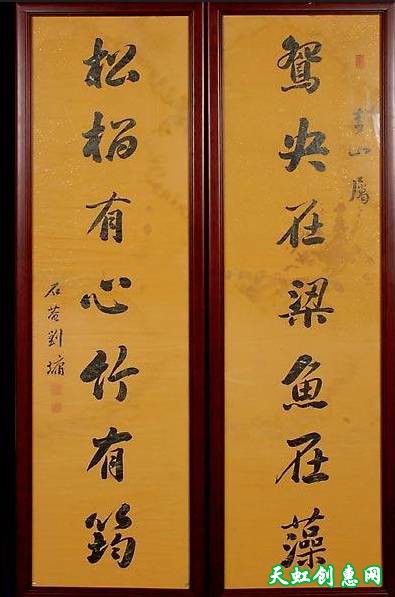 山屬
鴛央在梁魚在藻
松柏有心竹有筠
石菴劉墉
天虹创惠网